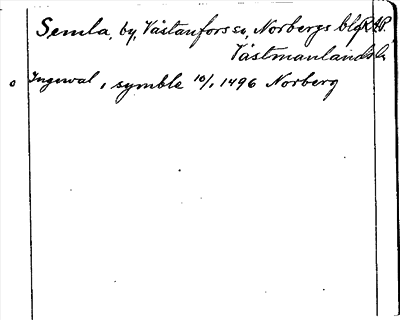 Semla, by, Västanfors sn, Norbergs blg
Västmanlands l.
o Ingeval, i symble 10/1 1496 Norberg